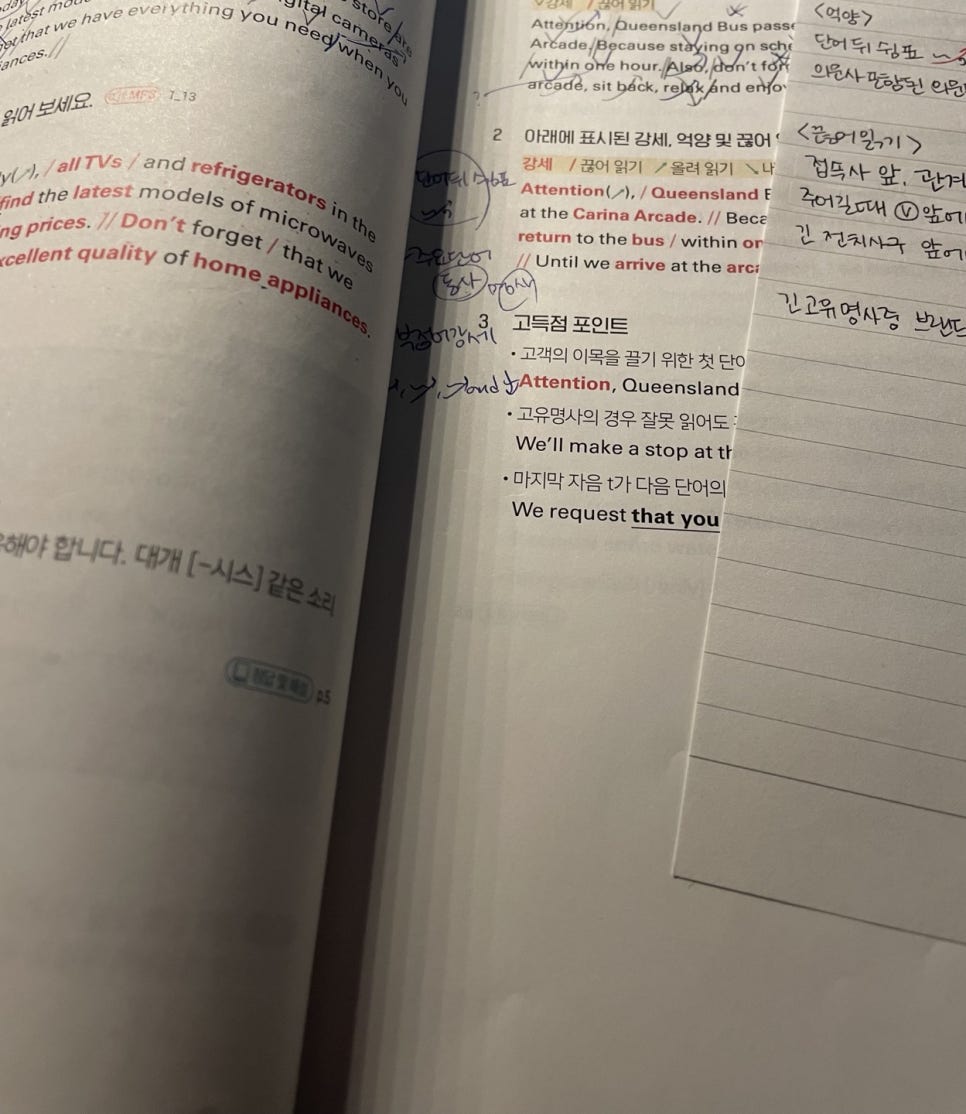 store are
digital cameras
latest
that we have everything you need/when you
ances.//
읽어 보세요. MP3 1_13
y(↗), / all TVs / and refrigerators in the
find the latest models of microwaves
ng prices. // Don't forget / that we
xcellent quality of home appliances.
해야 합니다. 대개 [-시스] 같은 소리
정답 및 해설 p.5
강세 / 끊어 읽기
Attention, Queensland Bus passe
Arcade. Because staying on sche
within one hour. Also, don't for
arcade, sit back, relax and enjo
2 아래에 표시된 강세, 억양 및 끊어
강세 / 끊어 읽기 ↗ 올려 읽기 ↘ 내
Attention(↗), / Queensland B
at the Carina Arcade. // Beca
return to the bus / within or
// Until we arrive at the arca
단어뒤 쉼표
주요단어
동사
부정어강세
3 고득점 포인트
• 고객의 이목을 끌기 위한 첫 단어
Attention, Queensland
• 고유명사의 경우 잘못 읽어도
We'll make a stop at th
• 마지막 자음 t가 다음 단어의
We request that you
<억양>
단어 뒤 쉼표
의문사
<끊어읽기>
접속사 앞, 관계
주어길때 Ⓥ앞에
긴 전치사구 앞에
긴고유명사랑 브랜드